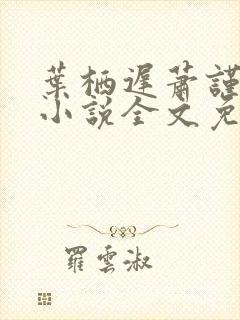 葉栖遲蕭謹
小說全文免
羅雲淑